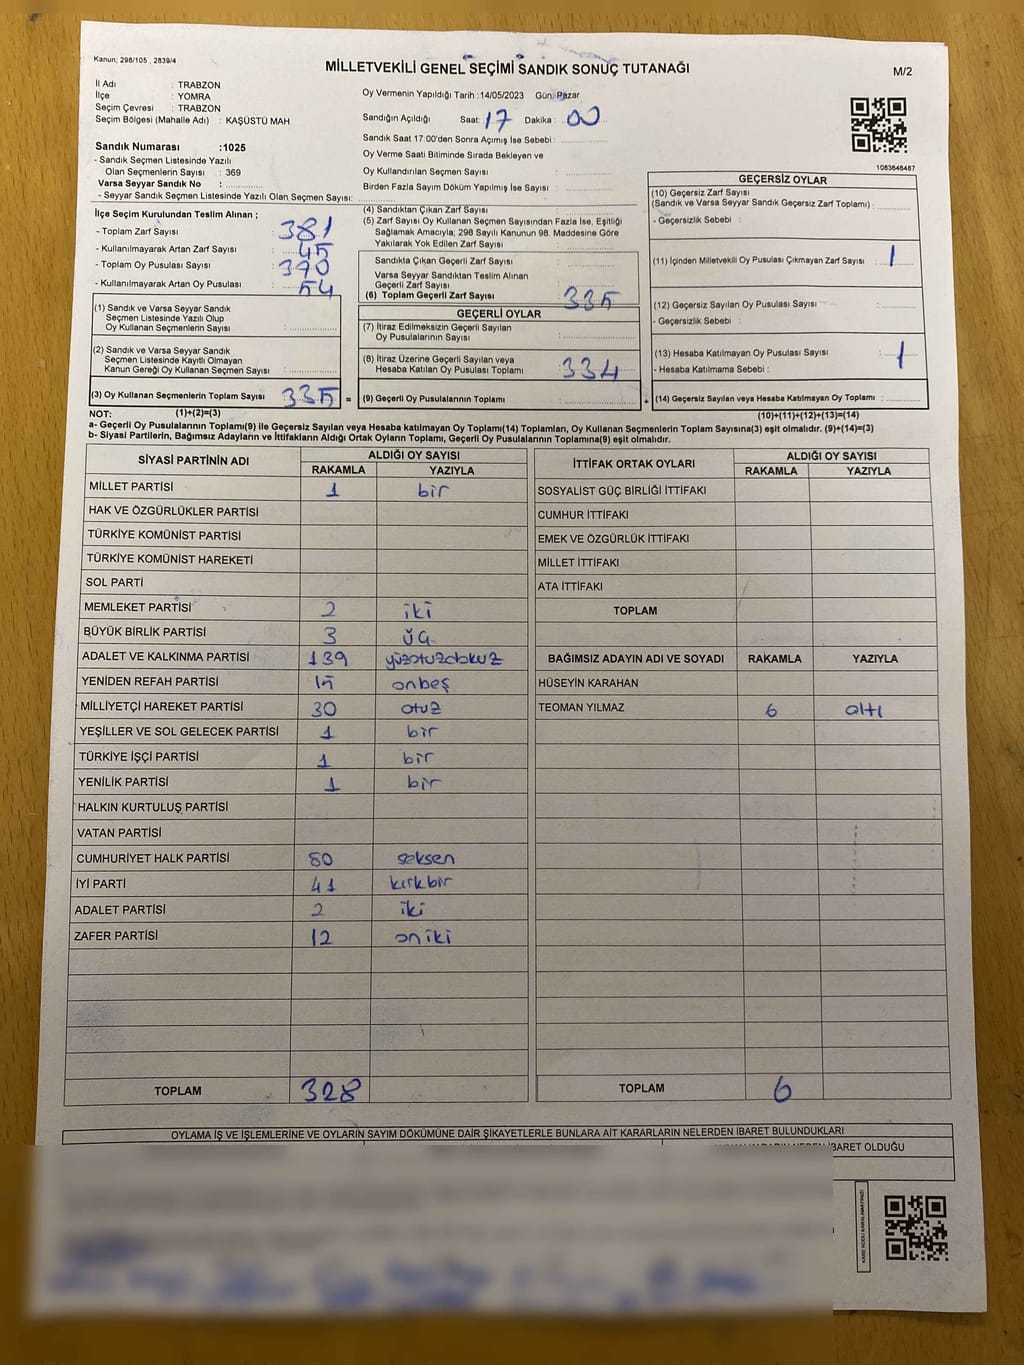 Kanun; 298/105 , 2839/4
MİLLETVEKİLİ GENEL SEÇİMİ SANDIK SONUÇ TUTANAĞI
M/2
İl Adı : TRABZON
İlçe : YOMRA
Seçim Çevresi : TRABZON
Seçim Bölgesi (Mahalle Adı) : KAŞÜSTÜ MAH.
Sandık Numarası :1025
- Sandık Seçmen Listesinde Yazılı
Olan Seçmenlerin Sayısı : 369
Varsa Seyyar Sandık No :
- Seyyar Sandık Seçmen Listesinde Yazılı Olan Seçmen Sayısı:
Oy Vermenin Yapıldığı Tarih :14/05/2023 Gün: Pazar
Sandığın Açıldığı Saat: 17 Dakika : 00
Sandık Saat 17:00'den Sonra Açımış İse Sebebi :
Oy Verme Saati Bitiminde Sırada Bekleyen ve
Oy Kullandırılan Seçmen Sayısı :
Birden Fazla Sayım Döküm Yapılmış İse Sayısı :
1083646487
İlçe Seçim Kurulundan Teslim Alınan ;
- Toplam Zarf Sayısı : 381
- Kullanılmayarak Artan Zarf Sayısı : 45
- Toplam Oy Pusulası Sayısı : 370
- Kullanılmayarak Artan Oy Pusulası : 54
(1) Sandık ve Varsa Seyyar Sandık
Seçmen Listesinde Yazılı Olup
Oy Kullanan Seçmenlerin Sayısı :
(2) Sandık ve Varsa Seyyar Sandık
Seçmen Listesinde Kayıtlı Olmayan
Kanun Gereği Oy Kullanan Seçmen Sayısı :
(3) Oy Kullanan Seçmenlerin Toplam Sayısı : 335 =
(4) Sandıktan Çıkan Zarf Sayısı :
(5) Zarf Sayısı Oy Kullanan Seçmen Sayısından Fazla İse, Eşitliği
Sağlamak Amacıyla; 298 Sayılı Kanunun 98. Maddesine Göre
Yakılarak Yok Edilen Zarf Sayısı :
Sandıkta Çıkan Geçerli Zarf Sayısı :
Varsa Seyyar Sandıktan Teslim Alınan
Geçerli Zarf Sayısı :
(6) Toplam Geçerli Zarf Sayısı : 335
GEÇERLİ OYLAR
(7) İtiraz Edilmeksizin Geçerli Sayılan
Oy Pusulalarının Sayısı :
(8) İtiraz Üzerine Geçerli Sayılan veya
Hesaba Katılan Oy Pusulası Toplamı : 334
(9) Geçerli Oy Pusulalarının Toplamı : +
GEÇERSİZ OYLAR
(10) Geçersiz Zarf Sayısı
(Sandık ve Varsa Seyyar Sandık Geçersiz Zarf Toplamı) :
- Geçersizlik Sebebi :
(11) İçinden Milletvekili Oy Pusulası Çıkmayan Zarf Sayısı : 1
(12) Geçersiz Sayılan Oy Pusulası Sayısı :
- Geçersizlik Sebebi :
(13) Hesaba Katılmayan Oy Pusulası Sayısı : 1
- Hesaba Katılmama Sebebi :
(14) Geçersiz Sayılan veya Hesaba Katılmayan Oy Toplamı :
NOT: (1)+(2)=(3) (10)+(11)+(12)+(13)=(14)
a- Geçerli Oy Pusulalarının Toplamı(9) ile Geçersiz Sayılan veya Hesaba Katılmayan Oy Toplamı(14) Toplamları, Oy Kullanan Seçmenlerin Toplam Sayısına(3) eşit olmalıdır. (9)+(14)=(3)
b- Siyasi Partilerin, Bağımsız Adayların ve İttifakların Aldığı Ortak Oyların Toplamı, Geçerli Oy Pusulalarının Toplamına(9) eşit olmalıdır.
SİYASİ PARTİNİN ADI ALDIĞI OY SAYISI
RAKAMLA YAZIYLA
MİLLET PARTİSİ 1 bir
HAK VE ÖZGÜRLÜKLER PARTİSİ
TÜRKİYE KOMÜNİST PARTİSİ
TÜRKİYE KOMÜNİST HAREKETİ
SOL PARTİ
MEMLEKET PARTİSİ 2 iki
BÜYÜK BİRLİK PARTİSİ 3 üç
ADALET VE KALKINMA PARTİSİ 139 yüzotuzdokuz
YENİDEN REFAH PARTİSİ 15 onbeş
MİLLİYETÇİ HAREKET PARTİSİ 30 otuz
YEŞİLLER VE SOL GELECEK PARTİSİ 1 bir
TÜRKİYE İŞÇİ PARTİSİ 1 bir
YENİLİK PARTİSİ 1 bir
HALKIN KURTULUŞ PARTİSİ
VATAN PARTİSİ
CUMHURİYET HALK PARTİSİ 80 seksen
İYİ PARTİ 41 kırkbir
ADALET PARTİSİ 2 iki
ZAFER PARTİSİ 12 oniki
TOPLAM 328
İTTİFAK ORTAK OYLARI ALDIĞI OY SAYISI
RAKAMLA YAZIYLA
SOSYALİST GÜÇ BİRLİĞİ İTTİFAKI
CUMHUR İTTİFAKI
EMEK VE ÖZGÜRLÜK İTTİFAKI
MİLLET İTTİFAKI
ATA İTTİFAKI
TOPLAM
BAĞIMSIZ ADAYIN ADI VE SOYADI RAKAMLA YAZIYLA
HÜSEYİN KARAHAN
TEOMAN YILMAZ 6 altı
TOPLAM 6
OYLAMA İŞ VE İŞLEMLERİNE VE OYLARIN SAYIM DÖKÜMÜNE DAİR ŞİKAYETLERLE BUNLARA AİT KARARLARIN NELERDEN İBARET BULUNDUKLARI
İBARET OLDUĞU
KARE KODU KARALAMAYINIZ!